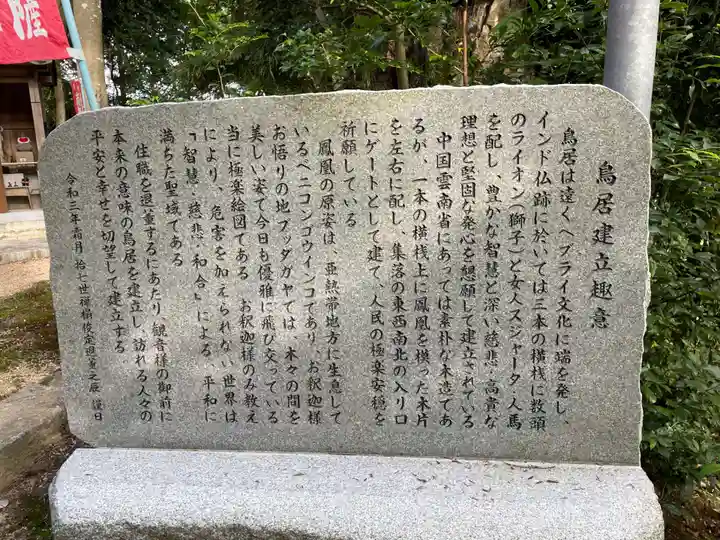 鳥居建立趣意
鳥居は遠くヘブライ文化に端を発し、
インド仏跡に於いては三本の横桟に数頭
のライオン(獅子)と女人スジャータ・人馬
を配し、豊かな智慧と深い慈悲、高貴な
理想と堅固な発心を懇願して建立されている
中国雲南省にあっては素朴な木造であ
るが、一本の横桟上に鳳凰を模った木片
を左右に配し、集落の東西南北の入り口
にゲートとして建て、人民の極楽安穏を
祈願している
鳳凰の原姿は、亜熱帯地方に生息して
いるベニコンゴウインコであり、お釈迦様
お悟りの地ブッダガヤでは、木々の間を
美しい姿で今日も優雅に飛び交っている
当に極楽絵図である お釈迦様のみ教え
により、危害を加えられない世界は
「智慧・慈悲・和合」による、平和に
満ちた聖域である
住職を退董するにあたり、観音様の御前に
本来の意味の鳥居を建立し、訪れる人々の
平安と幸せを切望して建立する
令和三年 月 拾七世禅楊俊 謹白